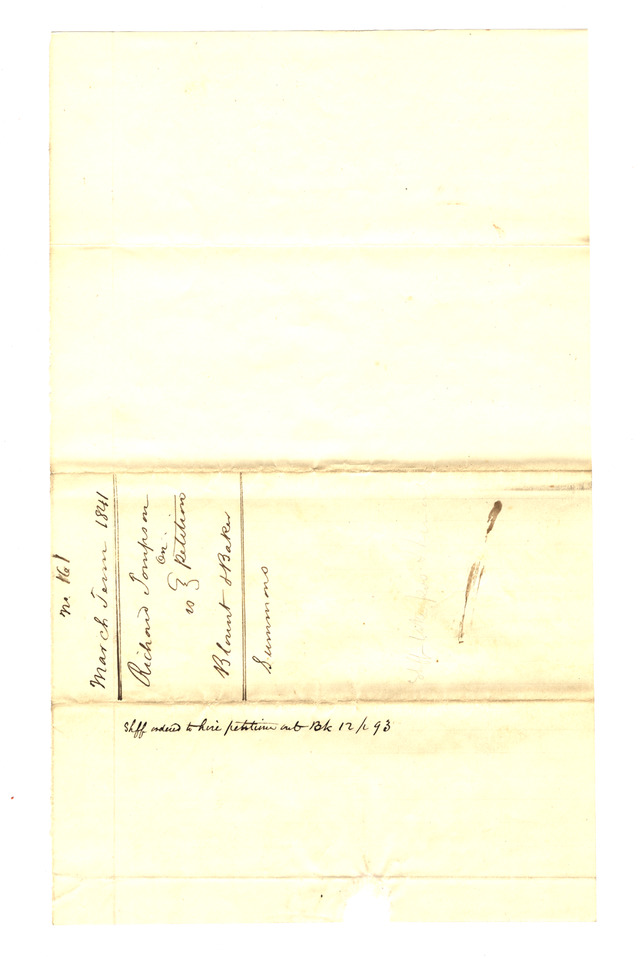 No 161
March Term 1841
Richard Tompson
on
vs } petition
Blount & Baker
Summons
Shff ordered to hire petitioner out Bk 12 p 93